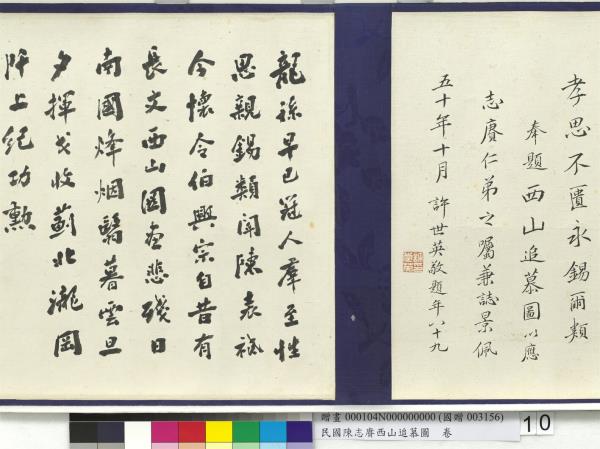 孝思不匱永錫爾類
奉題西山追慕圖以應
志賡仁弟之囑兼誌景佩
五十年十月 許世英敬題年八十九
龍孫早已冠人羣至性
思親錫類聞陳表祗
今懷令伯興宗自昔有
長文西山圖畫悲殘日
南國烽烟翳暮雲旦
夕揮戈收薊北瀧岡
阡上紀功勳
贈畫 000104N000000000 (國贈 003156)
民國陳志賡西山追慕圖 卷
10